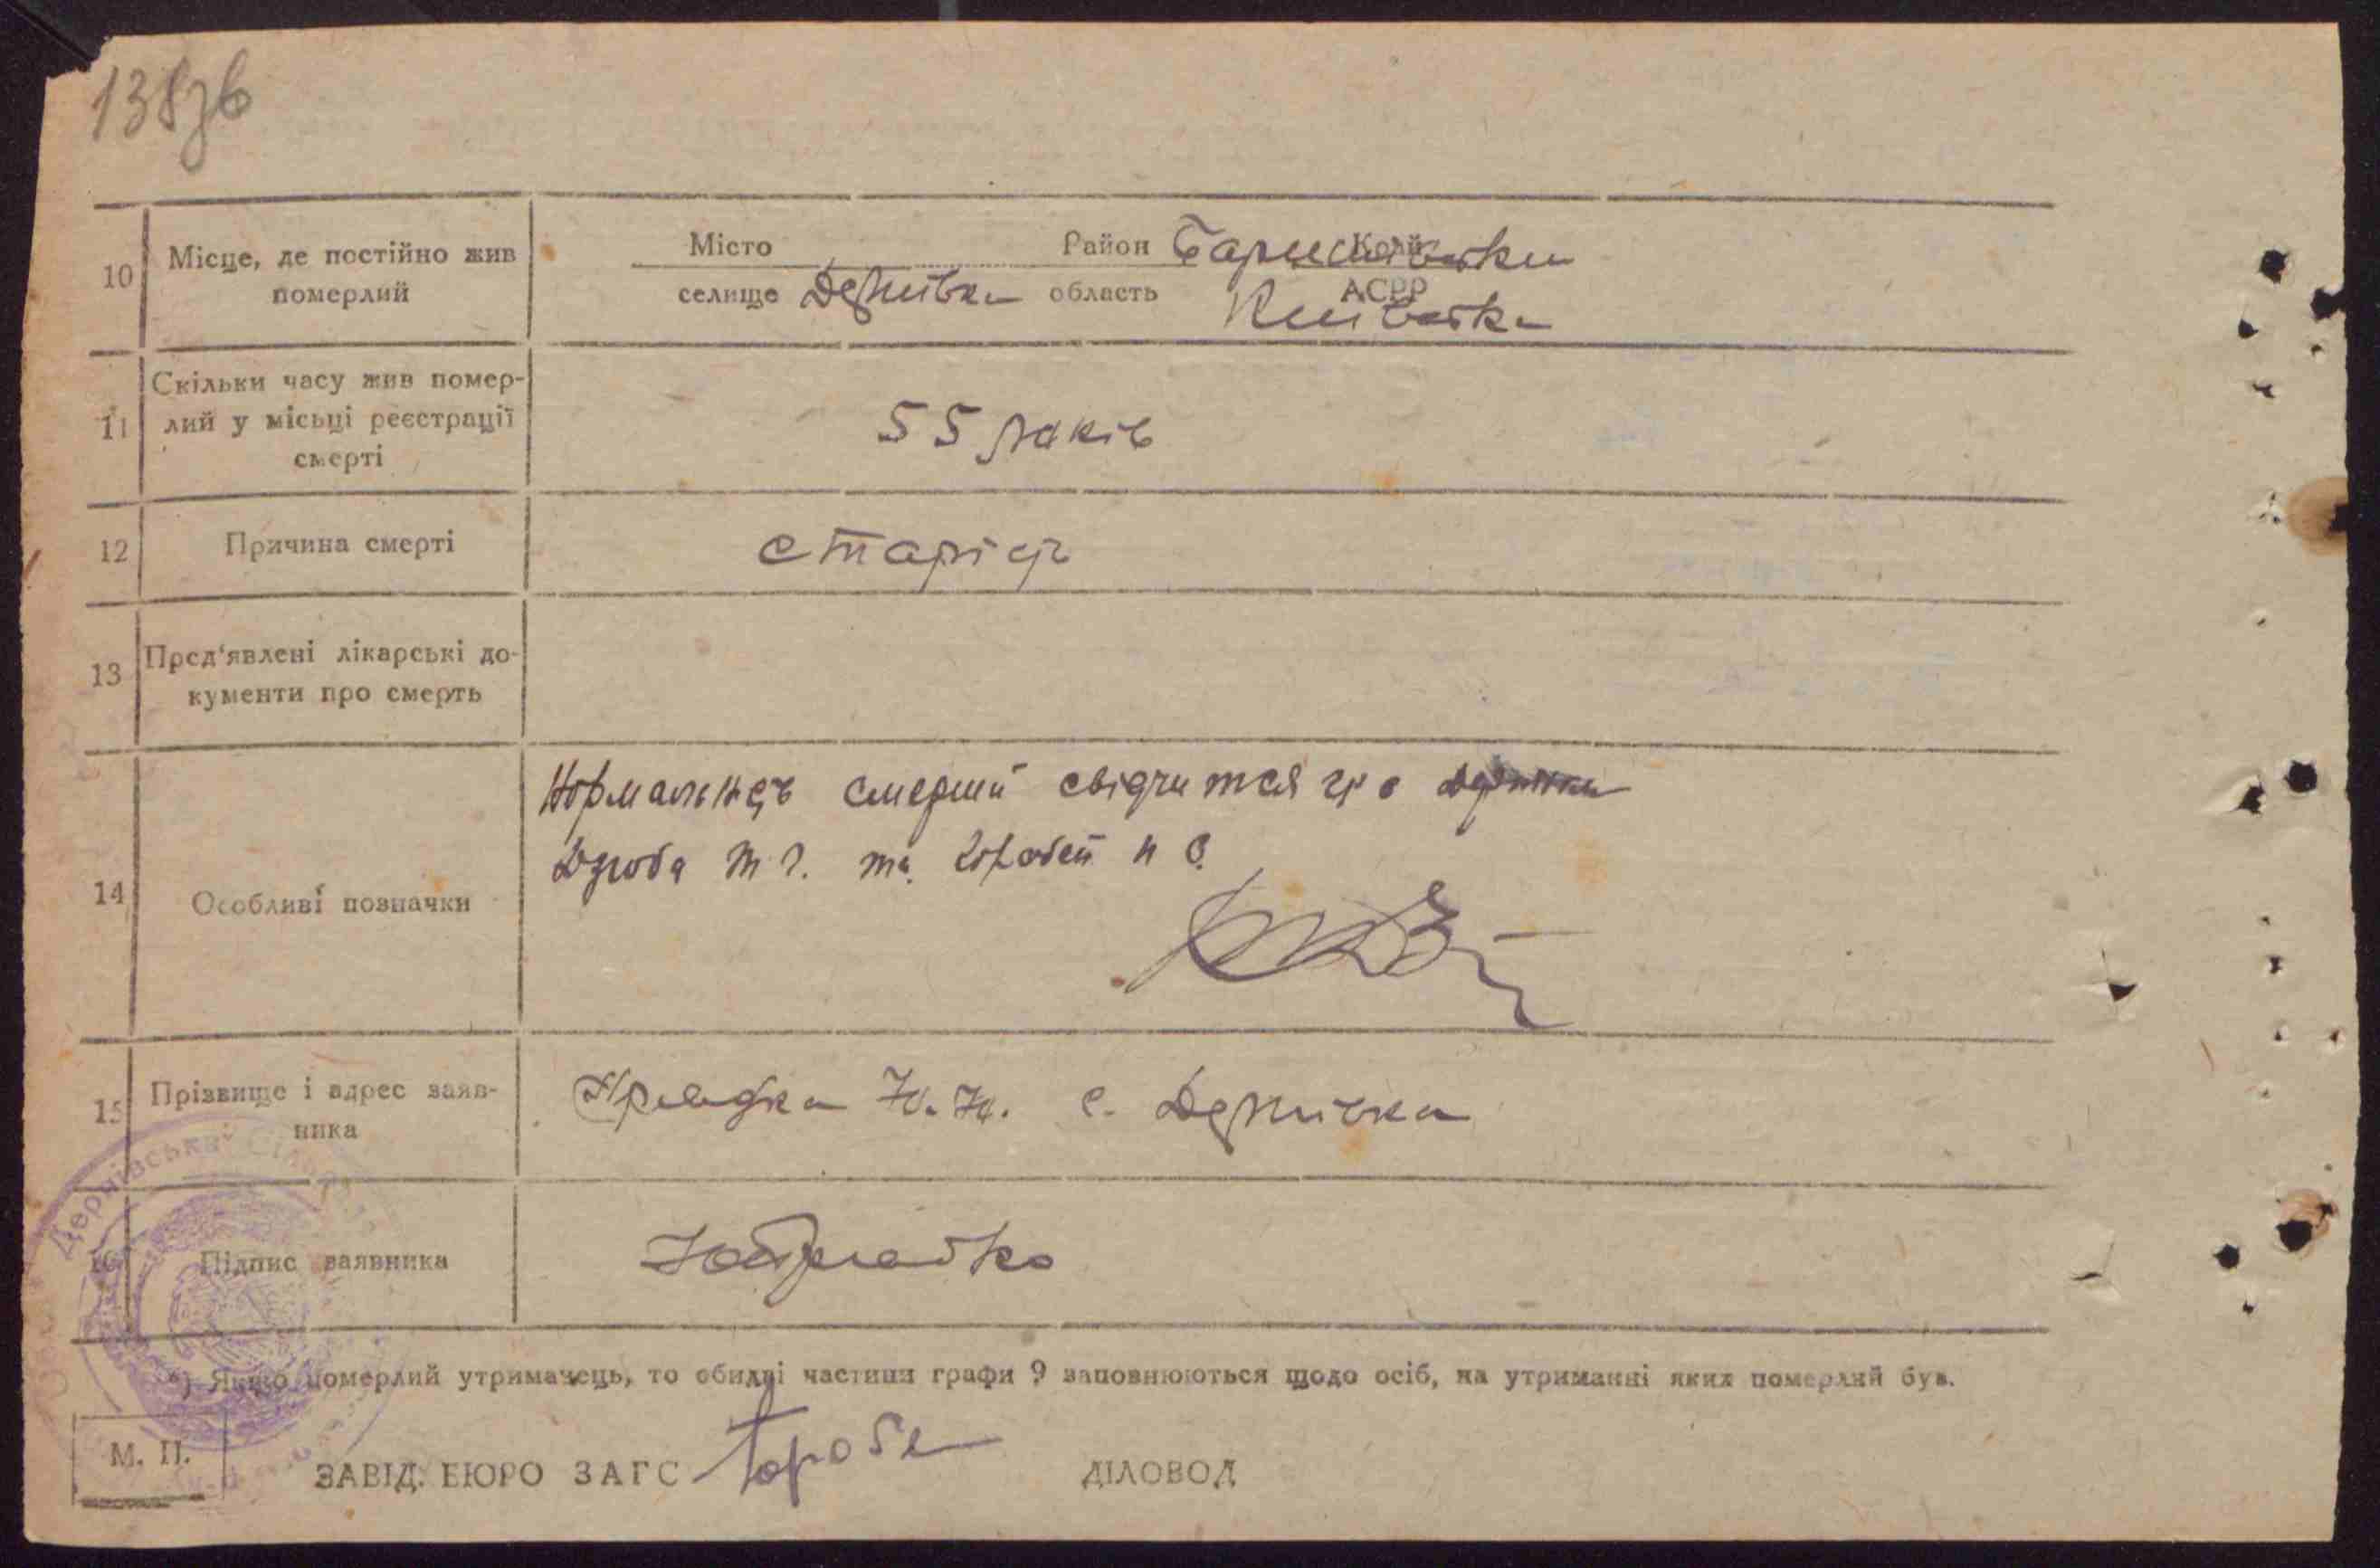 138зв
10 Місце, де постійно жив померлий
Місто Район Баришівськ Край
селище Дернівка область Київська АСРР
11 Скільки часу жив помер-
лий у місьці реєстрації
смерті
55 років
12 Причина смерті
старість
13 Пред'явлені лікарські до-
кументи про смерть
14 Особливі позначки
смерти свідчится
Дзюба та
15 Прізвище і адрес заяв-
ника
с. Дернівка
16 Підпис заявника
*) Якщо померлий утриманець, то обидві частини графи 9 заповнюються щодо осіб, на утриманні яких померлий був.
М. П.
ЗАВІД. БЮРО ЗАГС
ДІЛОВОД